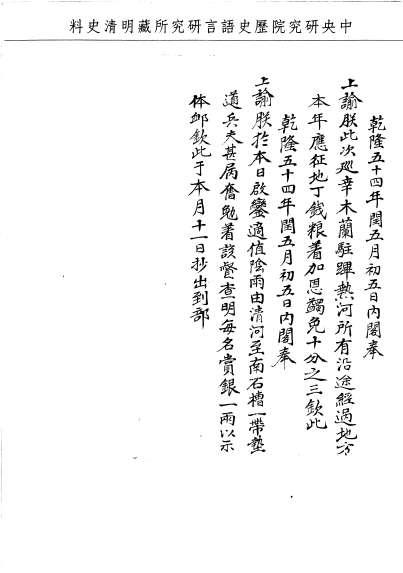 中央研究院歷史語言研究所藏明清史料
乾隆五十四年閏五月初五日內閣奉
上諭朕此次巡幸木蘭駐蹕熱河所有沿途經過地方
本年應征地丁錢粮着加恩蠲免十分之三欽此
乾隆五十四年閏五月初五日內閣奉
上諭朕於本日啟鑾適值陰雨由清河至南石槽一帶墊
道兵夫甚屬奮勉着該督查明每名賞銀一兩以示
体卹欽此于本月十一日抄出到部